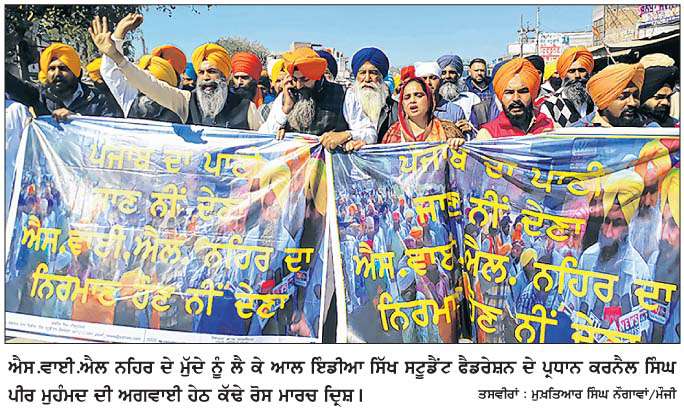 ਪੰਜਾਬ ਦਾ ਪਾਣੀ
ਜਾਣ ਨੀਂ ਦੇਣਾ
ਐਸ.ਵਾਈ.ਐਲ. ਨਹਿਰ ਦਾ
ਨਿਰਮਾਣ ਹੋਣ ਨੀਂ ਦੇਣਾ
ਪੰਜਾਬ ਦਾ ਪਾਣੀ
ਜਾਣ ਨੀਂ ਦੇਣਾ
ਐਸ.ਵਾਈ.ਐਲ. ਨਹਿਰ ਦਾ
ਨਿਰਮਾਣ ਹੋਣ ਨੀਂ ਦੇਣਾ
NEWS
ਐਸ.ਵਾਈ.ਐਲ ਨਹਿਰ ਦੇ ਮੁੱਦੇ ਨੂੰ ਲੈ ਕੇ ਆਲ ਇੰਡੀਆ ਸਿੱਖ ਸਟੂਡੈਂਟ ਫੈਡਰੇਸ਼ਨ ਦੇ ਪ੍ਰਧਾਨ ਕਰਨੈਲ ਸਿੰਘ
ਪੀਰ ਮੁਹੰਮਦ ਦੀ ਅਗਵਾਈ ਹੇਠ ਕੱਢੇ ਰੋਸ ਮਾਰਚ ਦ੍ਰਿਸ਼।
ਤਸਵੀਰਾਂ : ਮੁਖ਼ਤਿਆਰ ਸਿੰਘ ਨੌਗਾਵਾਂ/ਮੌਜੀ